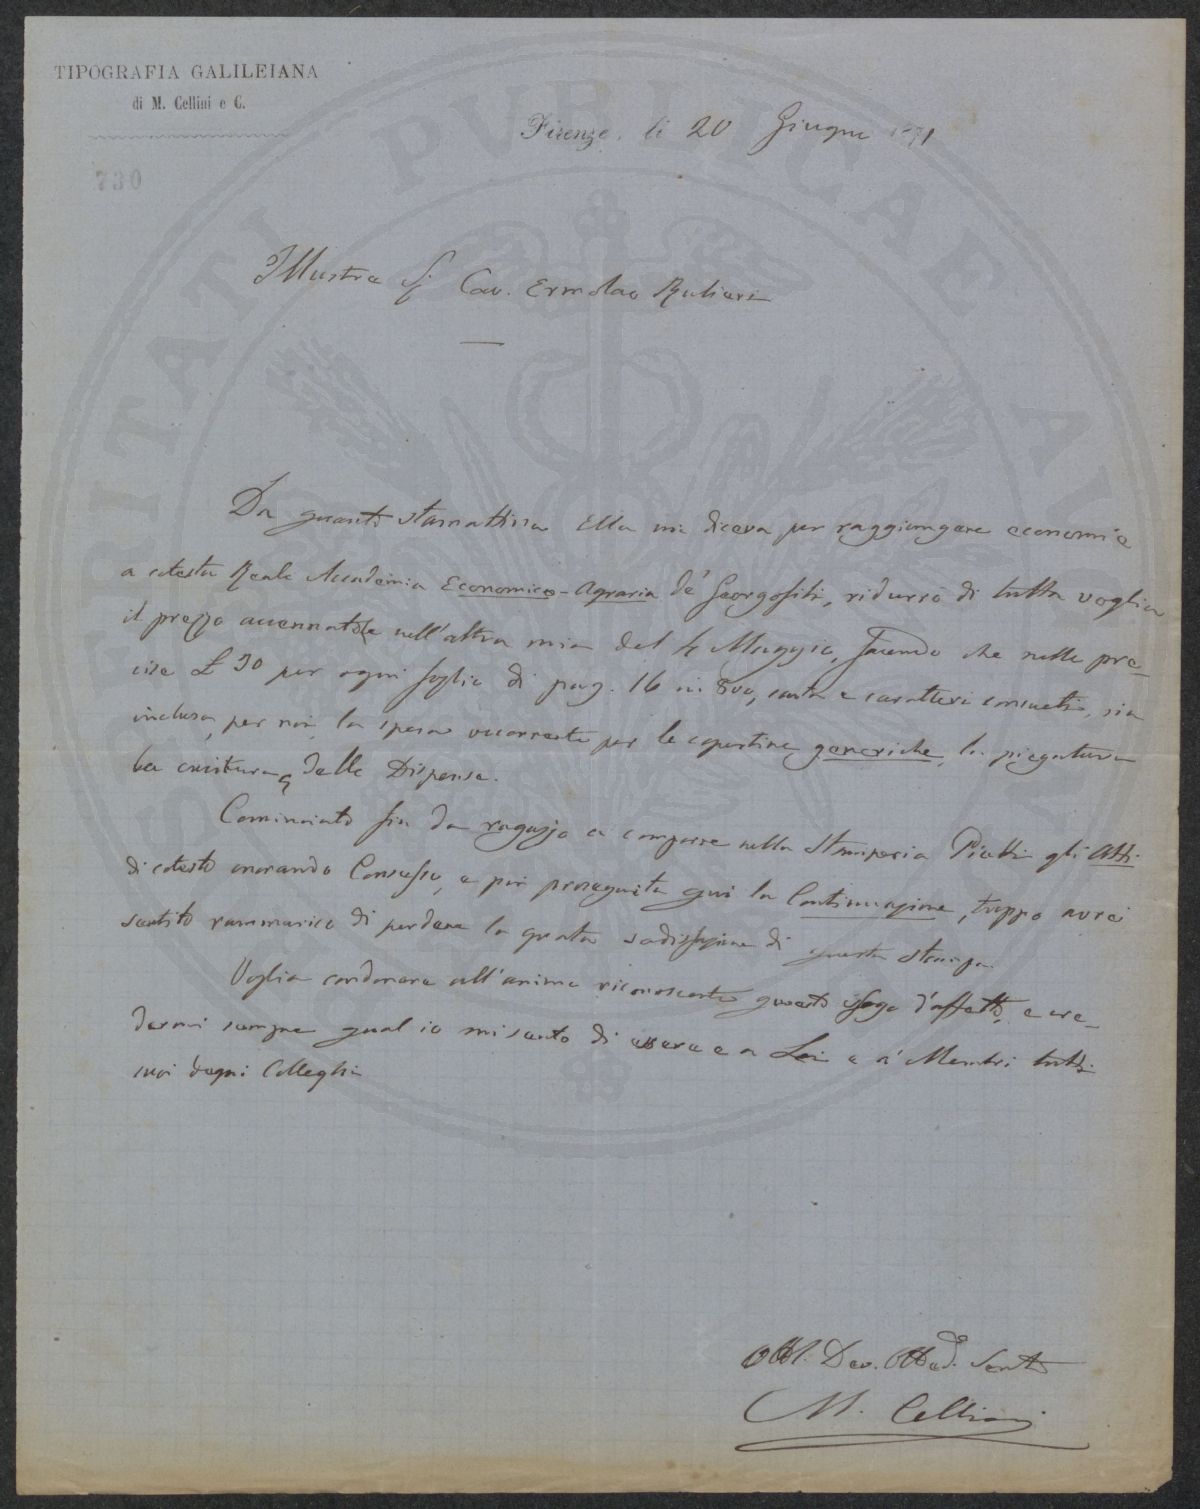 TIPOGRAFIA GALILEIANA
di M. Cellini e C.
730
Firenze, li 20 Giugno 1871
Illustre S. Cav. Ermolao Rubieri
Da quanto stamattina Ella mi diceva per raggiungere economie
a cotesta Reale Accademia Economico-Agraria de' Georgofili, ridurrò di tutta voglia
il prezzo accennatole nell'altra mia del 4 Maggio, facendo che nelle pre-
cise £ 30 per ogni foglio di pag. 16 in 8vo, carta e caratteri consueti, sia
inclusa, per noi, la spesa occorrente per le copertine generiche, la piegatura
la cucitura delle Dispense.
Cominciato fin da ragazzo a comporre nella Stamperia Piatti gli Atti
di cotesto onorando Consesso, e poi proseguita qui la Continuazione, troppo avrei
sentito rammarico di perdere la grata sodisfazione di questa stampa.
Voglia condonare all'animo riconoscente questo sfogo d'affetto, e cre-
dermi sempre qual io mi sento di essere e a Lei e a' Membri tutti
suoi degni Colleghi
Obbl. Dev. Obbed. Servit
M. Cellini
PROSPERITATI PUBLICAE AUGENDAE